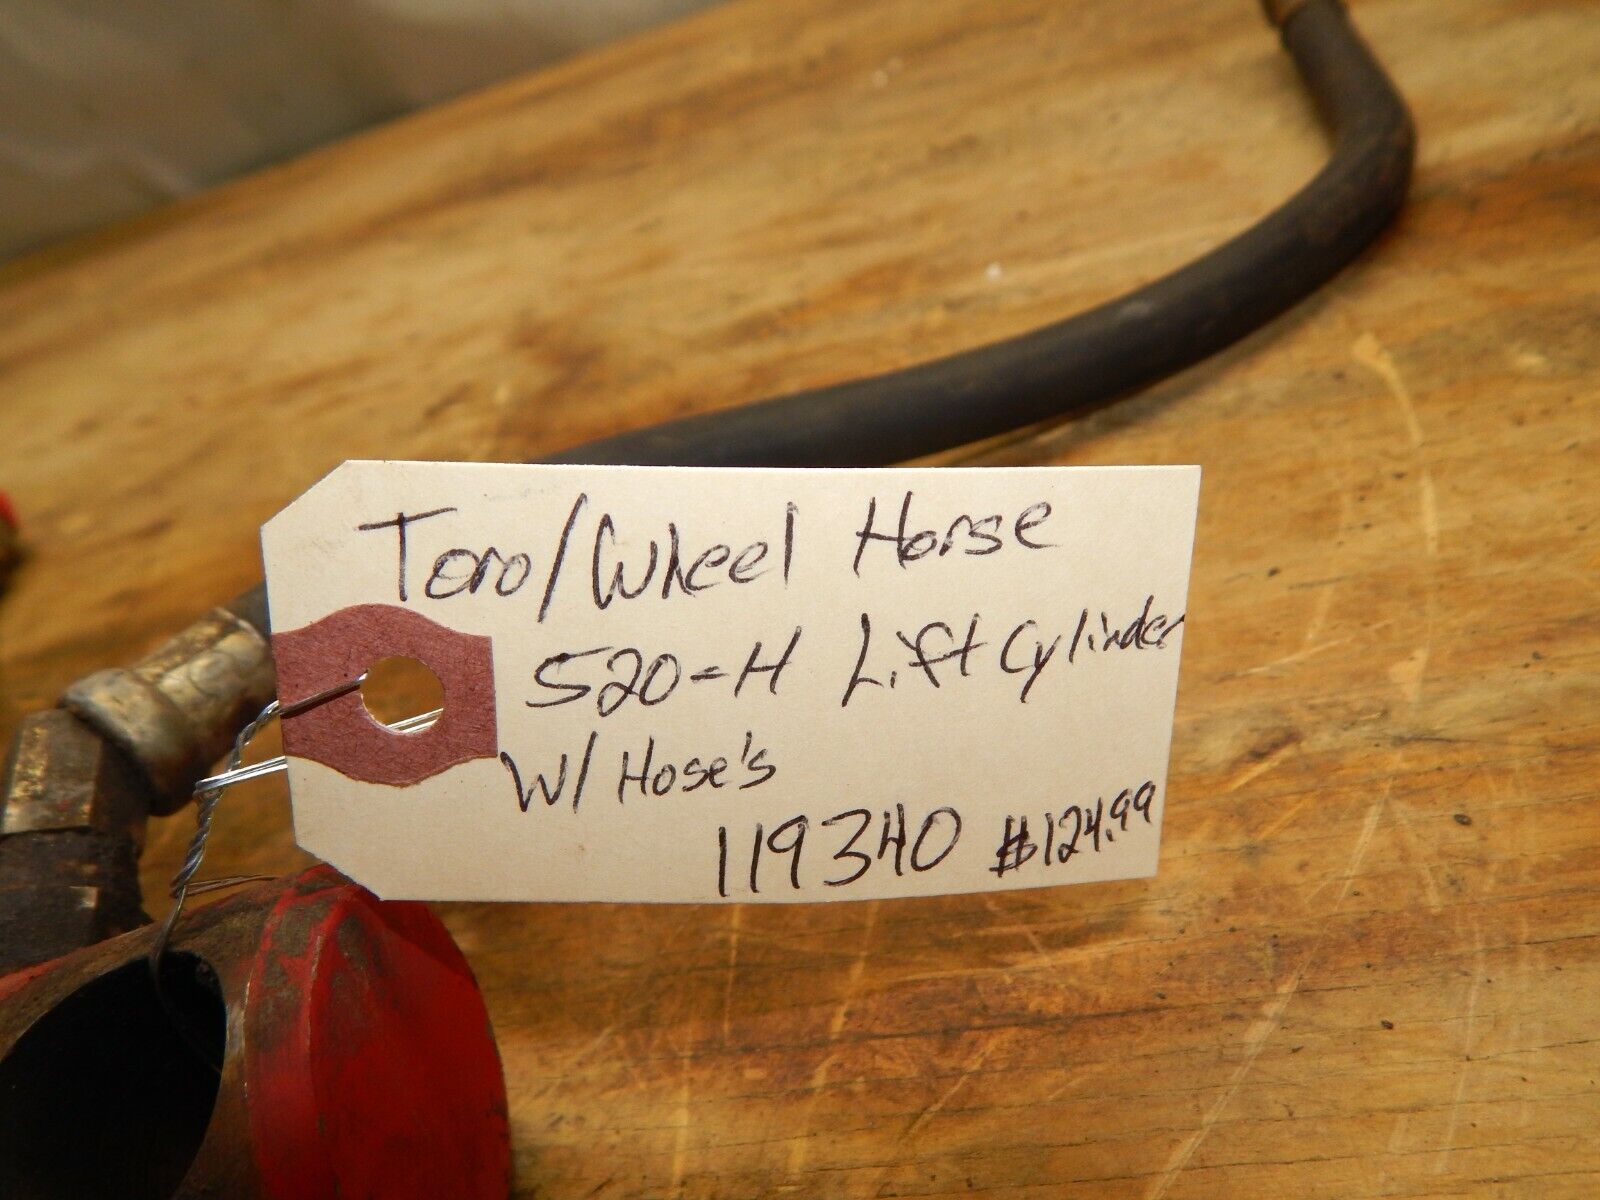 Toro/Wheel Horse
520-H Lift Cylinder
W/ Hose's
119340 $124.99